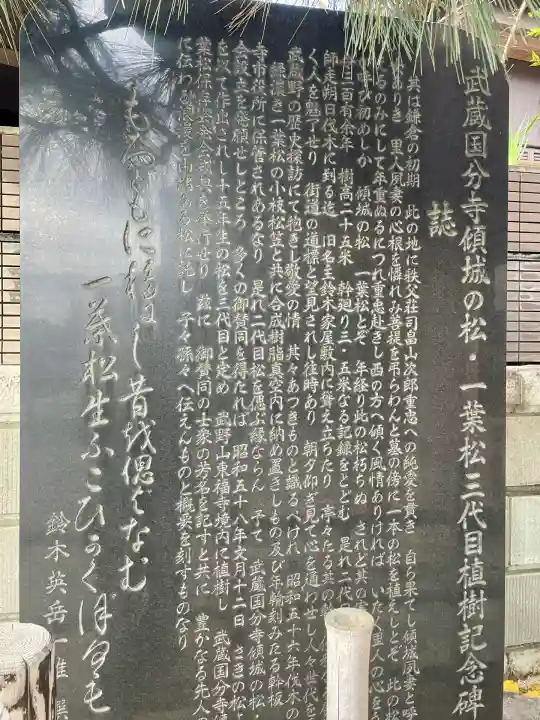 武蔵国分寺傾城の松・一葉松三代目植樹記念碑
誌
其は鎌倉の初期 此の地に秩父荘司畠山次郎重忠への純愛を貫き 自ら果てし傾城夙妻と呼
ありき 里人夙妻の心根を憐れみ菩提を弔らわんと墓の傍に一本の松を植えしとぞ 此の松
のみにして年重ぬるにつれ重忠赴きし西の方へ傾く風情ありければ いたく里人の心を
呼び初めしか 傾城の松 一葉松とぞ 年経り此の松朽ちぬ されど其の
二百有余年 樹高二十五米 幹廻り三・五米なる記録をとどむ 是れ二代
師走朔日伐木に到る迄 旧名主鈴木家屋敷内に聳え立ちたり 亭々たる其の
く人を魅了せり 街道の道標と望見されし往時あり 朝夕仰ぎ見て心を通わせし人々世代を
武蔵野の歴史探訪にて抱きし敬愛の情 其々あつきものと識るへけれ 昭和五十六年伐木の
緑濃き一葉松の小枝松笠と共に合成樹脂真空内に納め置きしもの及び年輪刻みたる幹板
寺市役所に保管されあるなり 是れ二代目松を偲ぶ縁ならん 子て 武蔵国分寺傾城の松・
会設立を発願せしところ 多くの御賛同を得たれば 昭和五十八年文月十二日 さきの松
を以て作出されし十五年生の松を三代目と定め 武野山東福寺境内に植樹し 武蔵国分寺
葉松保存会発会式典を挙行せり 茲に 御賛同の士衆の芳名を記すと共に 豊かなる先人の
に伝わる 松に託し 子々孫々へ伝えんものと概要を刻すものなり
し昔を偲ばなむ
一葉松生ふこひがくぼのも
鈴木英岳 撰